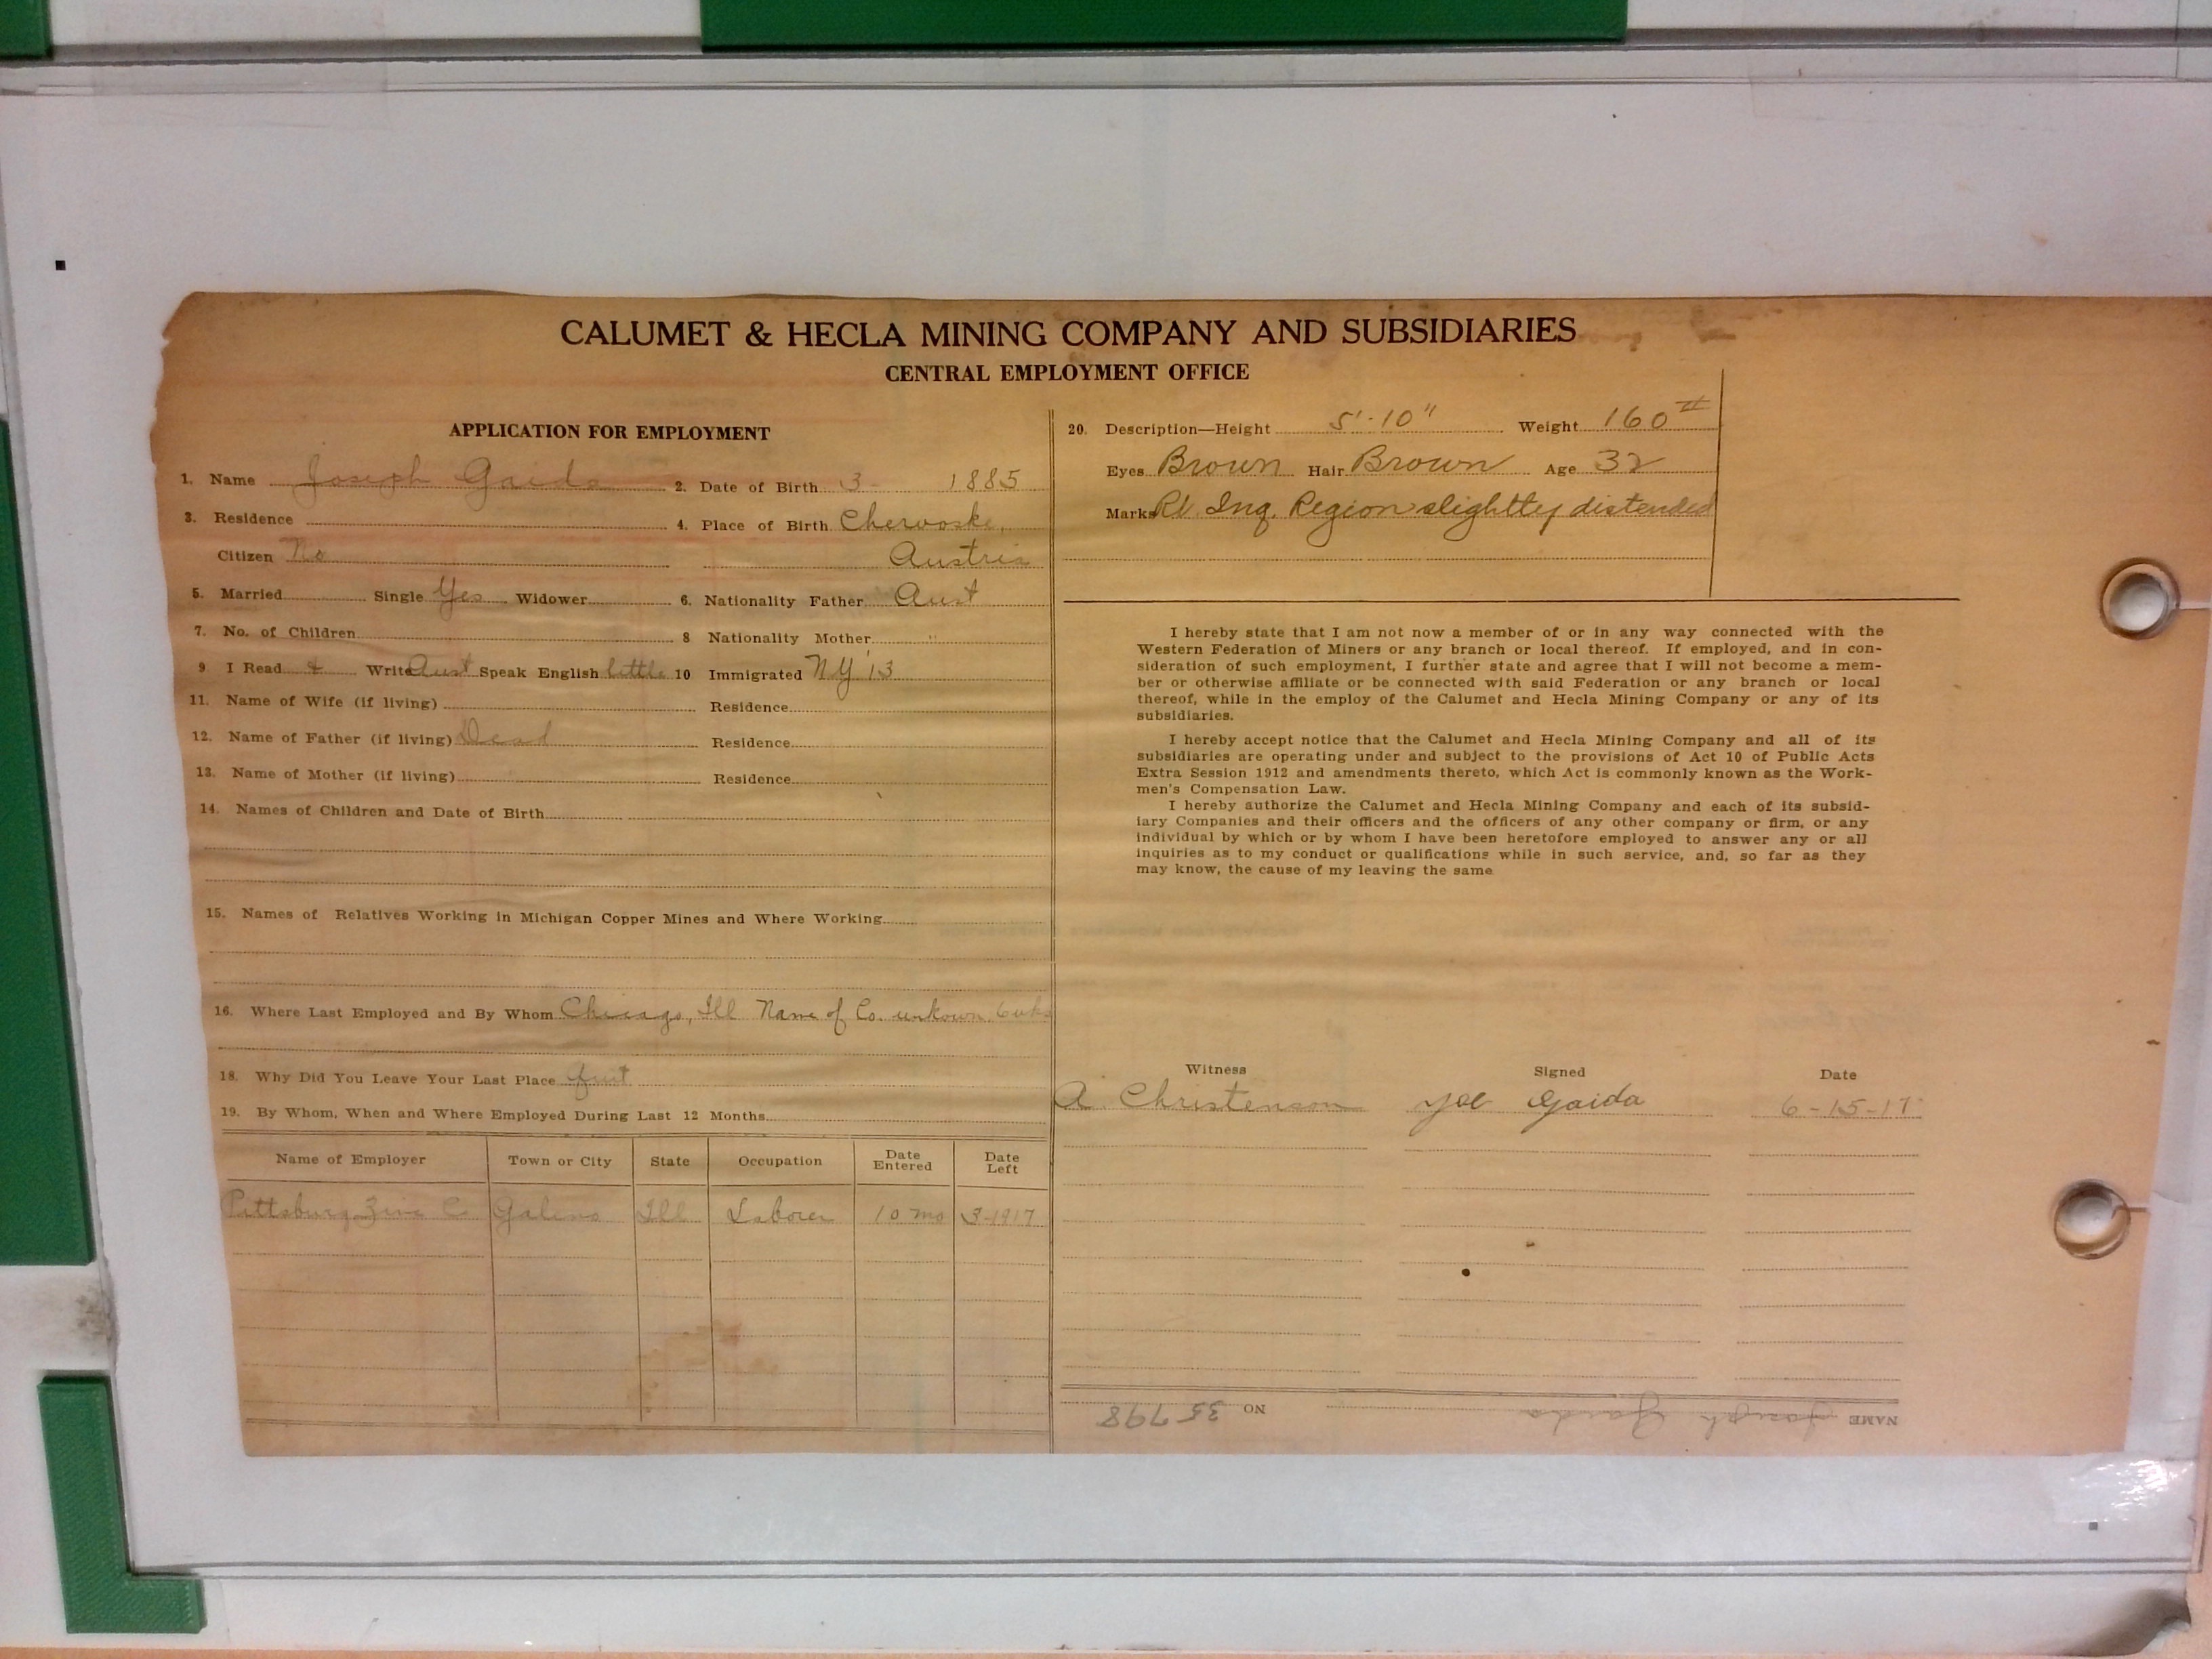 CALUMET & HECLA MINING COMPANY AND SUBSIDIARIES
CENTRAL EMPLOYMENT OFFICE
APPLICATION FOR EMPLOYMENT
1. Name Joseph Gaida 2. Date of Birth 3 - 1885
3. Residence 4. Place of Birth Chervoske,
Citizen No Austria
5. Married Single Yes Widower 6. Nationality Father Aust
7. No. of Children 8 Nationality Mother "
9 I Read & Write Aust Speak English little 10 Immigrated NY '13
11. Name of Wife (if living) Residence
12. Name of Father (if living) Dead Residence
13. Name of Mother (if living) Residence
14. Names of Children and Date of Birth
15. Names of Relatives Working in Michigan Copper Mines and Where Working
16. Where Last Employed and By Whom Chicago, Ill Name of Co. unkown 6 wks
18. Why Did You Leave Your Last Place Quit
19. By Whom, When and Where Employed During Last 12 Months
Name of Employer Town or City State Occupation Date Entered Date Left
Pittsburg Zinc Co Galena Ill Laborer 10 mo 3-1917
20. Description—Height 5'-10" Weight 160#
Eyes Brown Hair Brown Age 32
Marks Rt. Ing. Region slightley distended
I hereby state that I am not now a member of or in any way connected with the
Western Federation of Miners or any branch or local thereof. If employed, and in con-
sideration of such employment, I further state and agree that I will not become a mem-
ber or otherwise affiliate or be connected with said Federation or any branch or local
thereof, while in the employ of the Calumet and Hecla Mining Company or any of its
subsidiaries.
I hereby accept notice that the Calumet and Hecla Mining Company and all of its
subsidiaries are operating under and subject to the provisions of Act 10 of Public Acts
Extra Session 1912 and amendments thereto, which Act is commonly known as the Work-
men's Compensation Law.
I hereby authorize the Calumet and Hecla Mining Company and each of its subsid-
iary Companies and their officers and the officers of any other company or firm, or any
individual by which or by whom I have been heretofore employed to answer any or all
inquiries as to my conduct or qualifications while in such service, and, so far as they
may know, the cause of my leaving the same
Witness Signed Date
A. Christenson Joe Gaida 6-15-17
NAME Joseph Gaida NO 35798